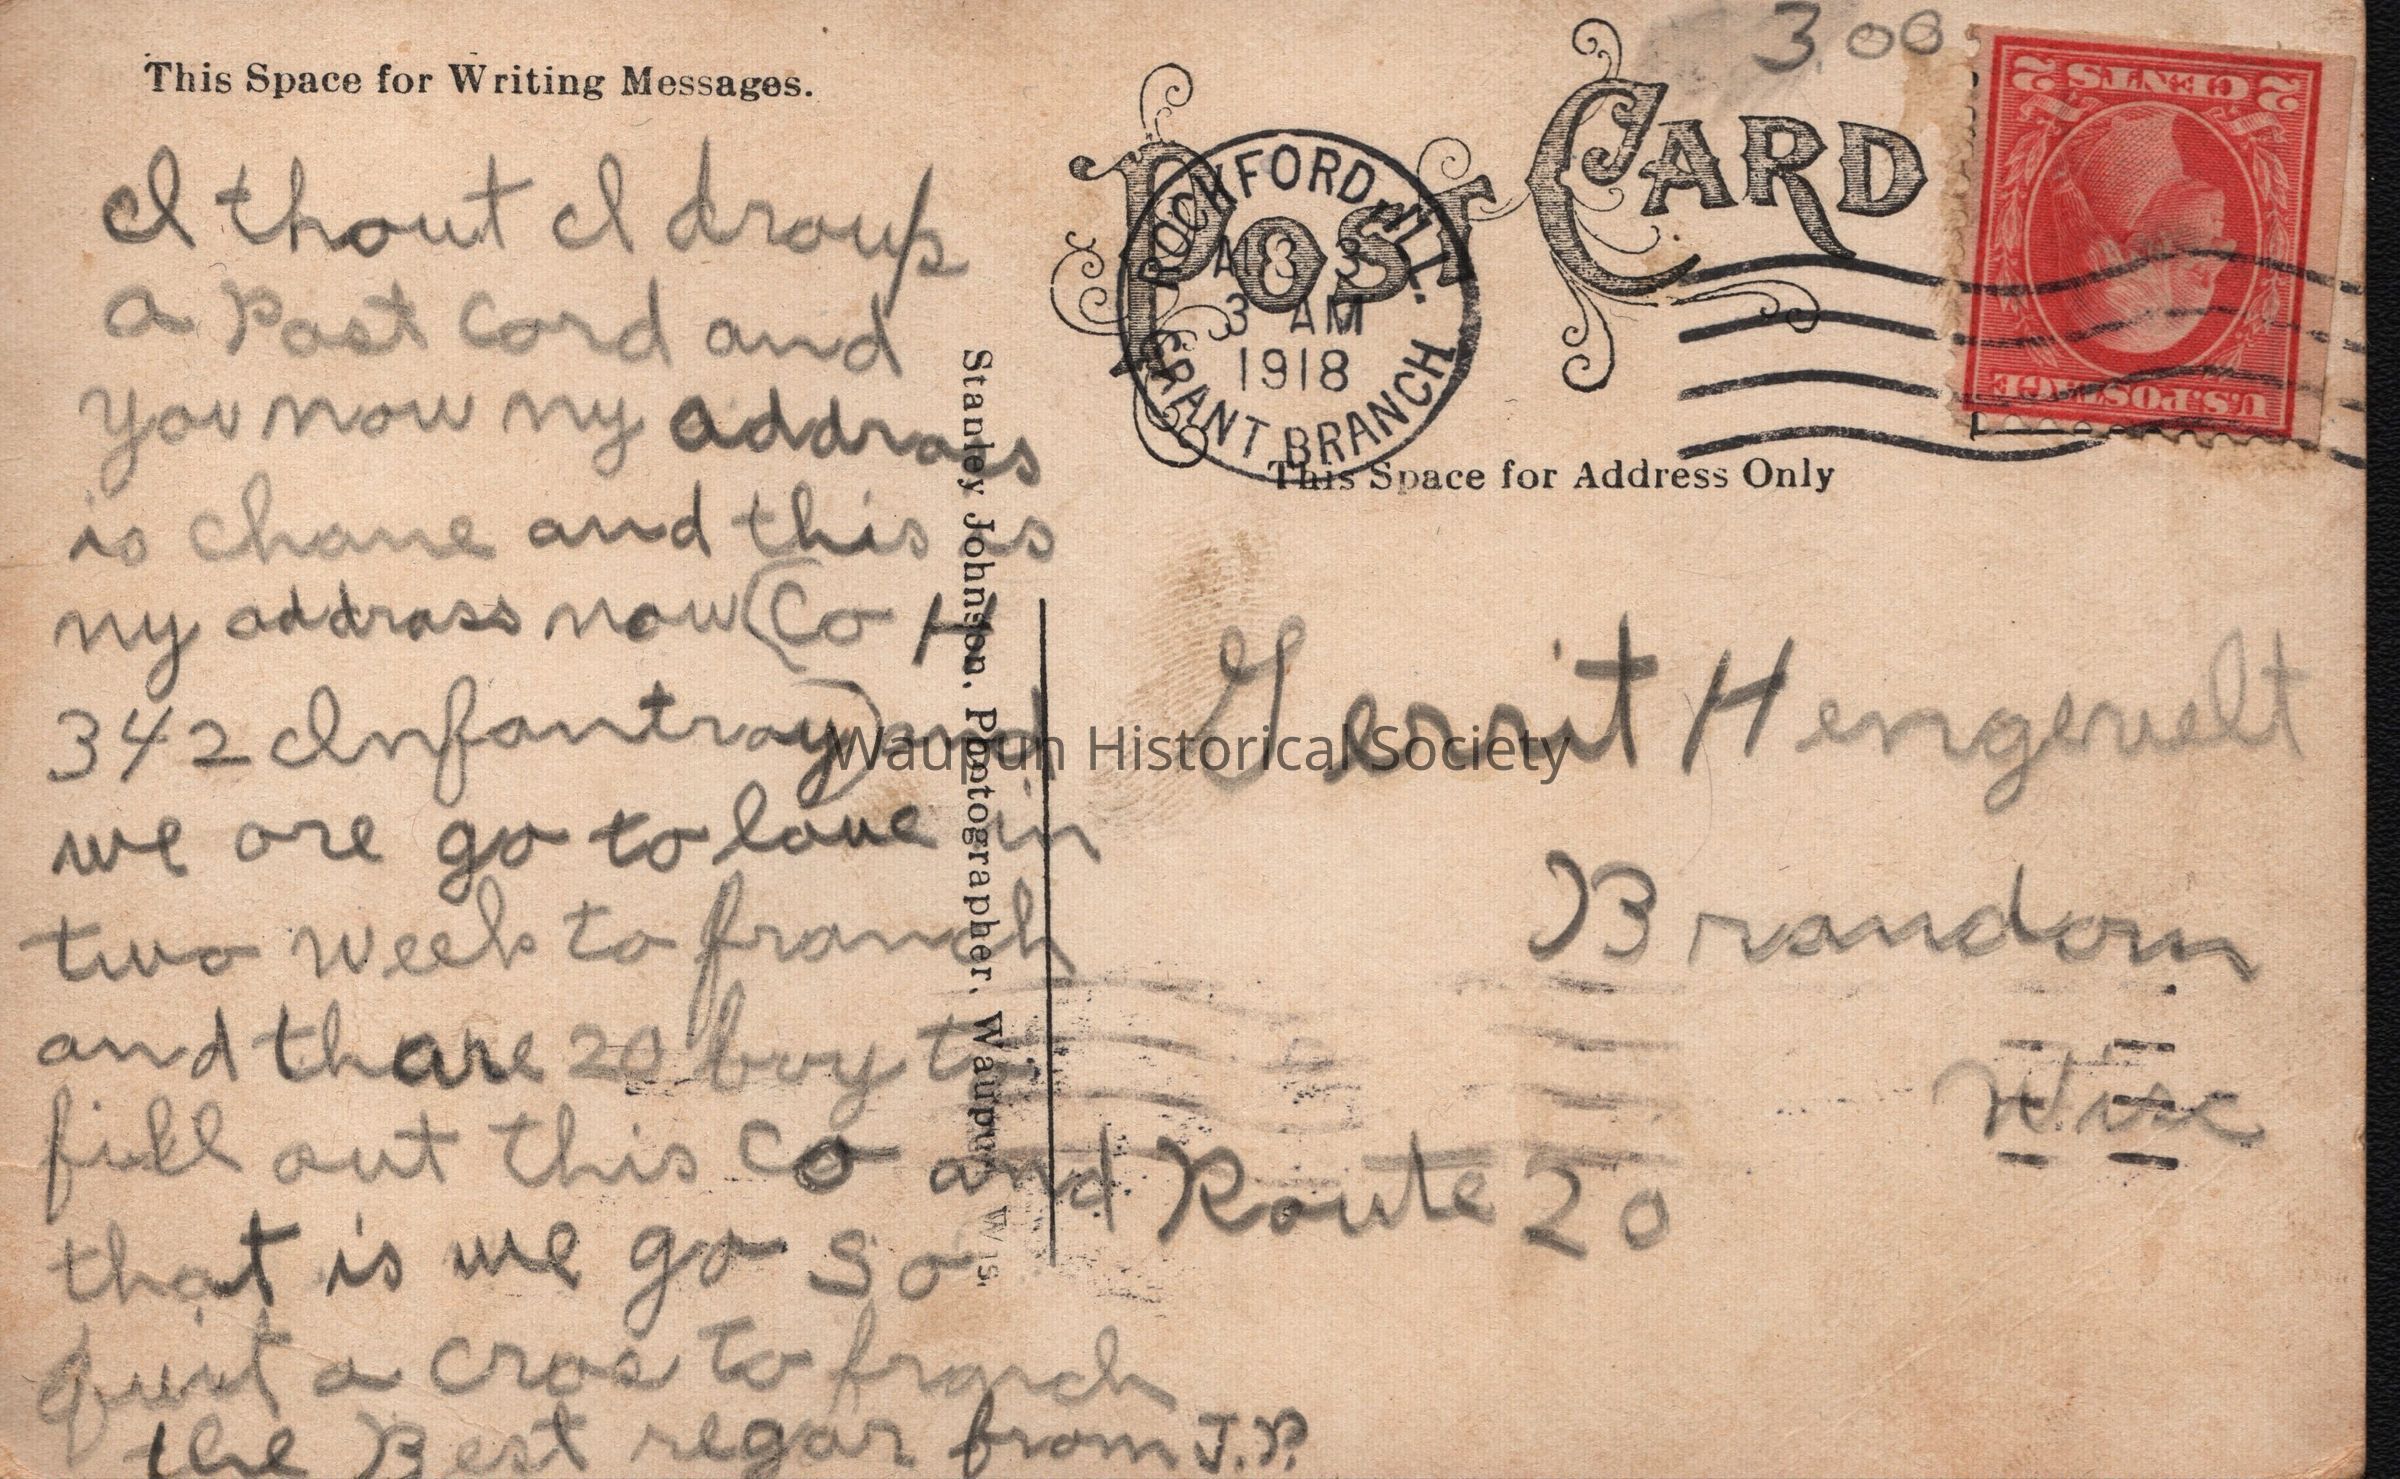 This Space for Writing Messages.
I thout I droup
a Post Cord and
you now my addrass
is chane and this is
ny addrass now (Co H
342 Infantray) and
we are go to love in
two week to franch
and thare 20 boy to
fill out this Co and
that is we go so
quit a cros to franch
the Best regar from J.P.
Stanley Johnson. Photographer. Waupun Wis.
POST CARD
3.00
ROCKFORD, ILL.
3
3 AM
1918
GRANT BRANCH
2 CENTS 2
U.S. POSTAGE
This Space for Address Only
Gerrit Hengevelt
Brandon
Wisc
Route 20
Waupun Historical Society